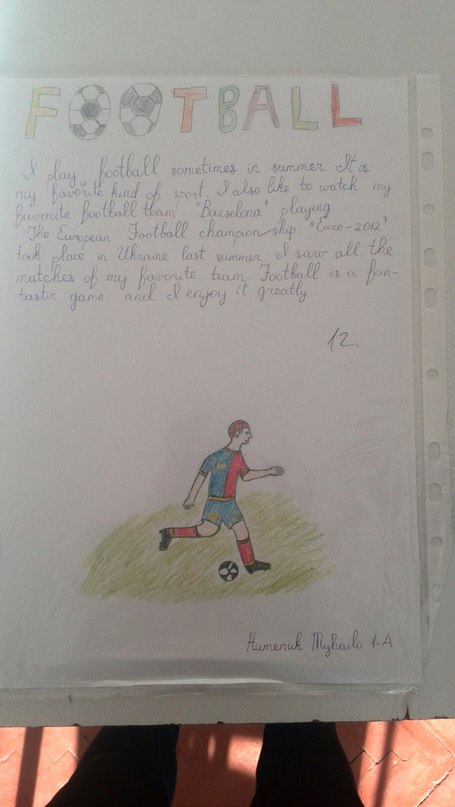 FOOTBALL
I play football sometimes in summer. It is
my favorite kind of sport. I also like to watch my
favorite football team "Barselona" playing
The European Football championship "Euro-2012"
took place in Ukraine last summer. I saw all the
matches of my favorite team. Football is a fan-
tastic game and I enjoy it greatly.
12.
Humenuk Myhailo 1-A